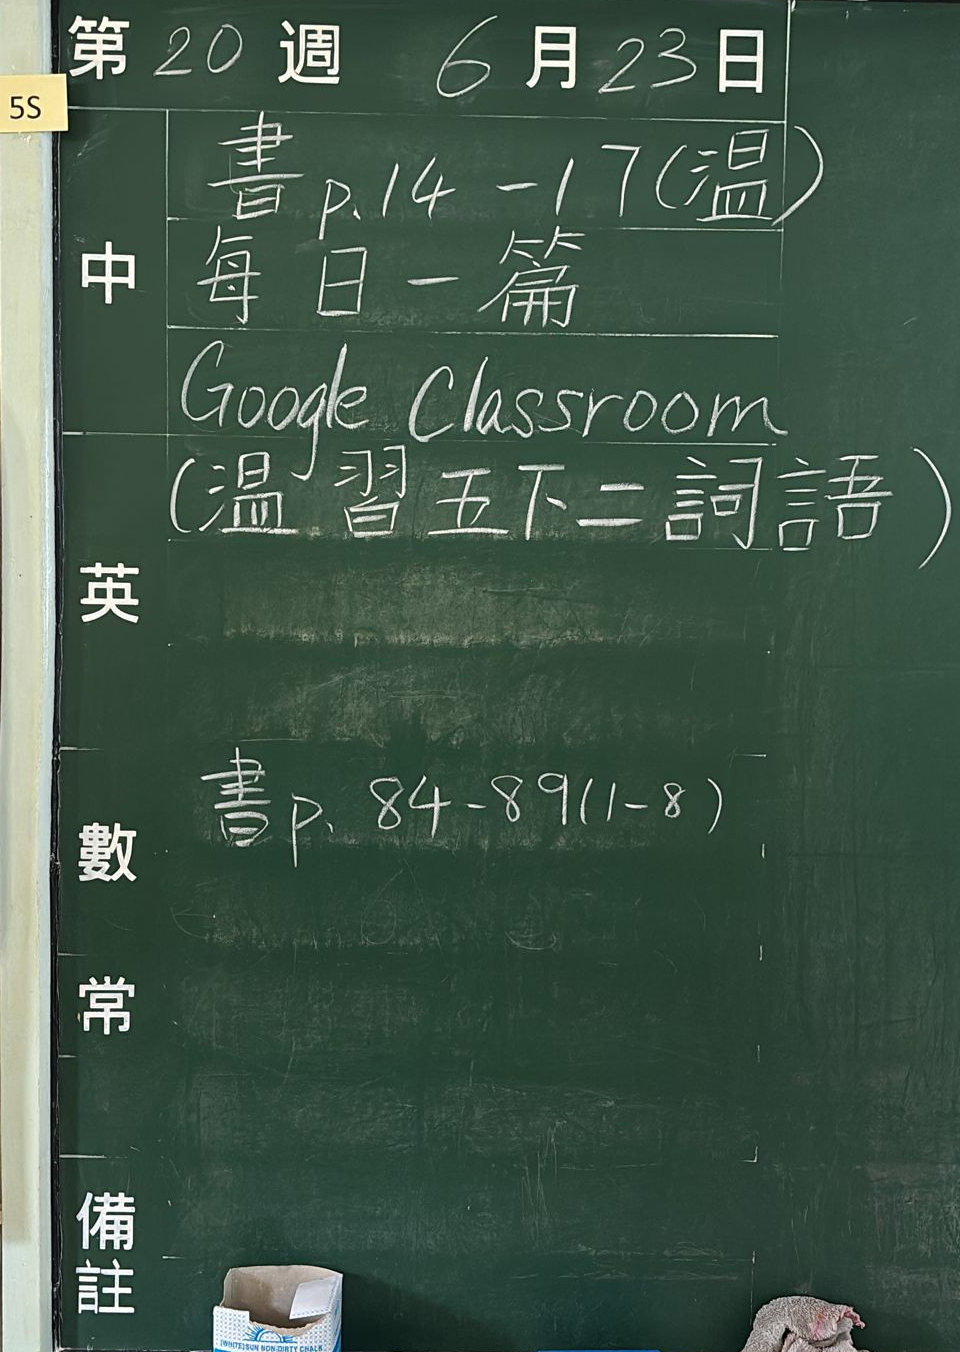 第 20 週 6 月 23 日
5S
中
書 p.14 - 17(温)
每日一篇
Google Classroom
(温習五下二詞語)
英
數
書 p. 84-89(1-8)
常
備註
(WHITE)SUN NON-DIRTY CHALK